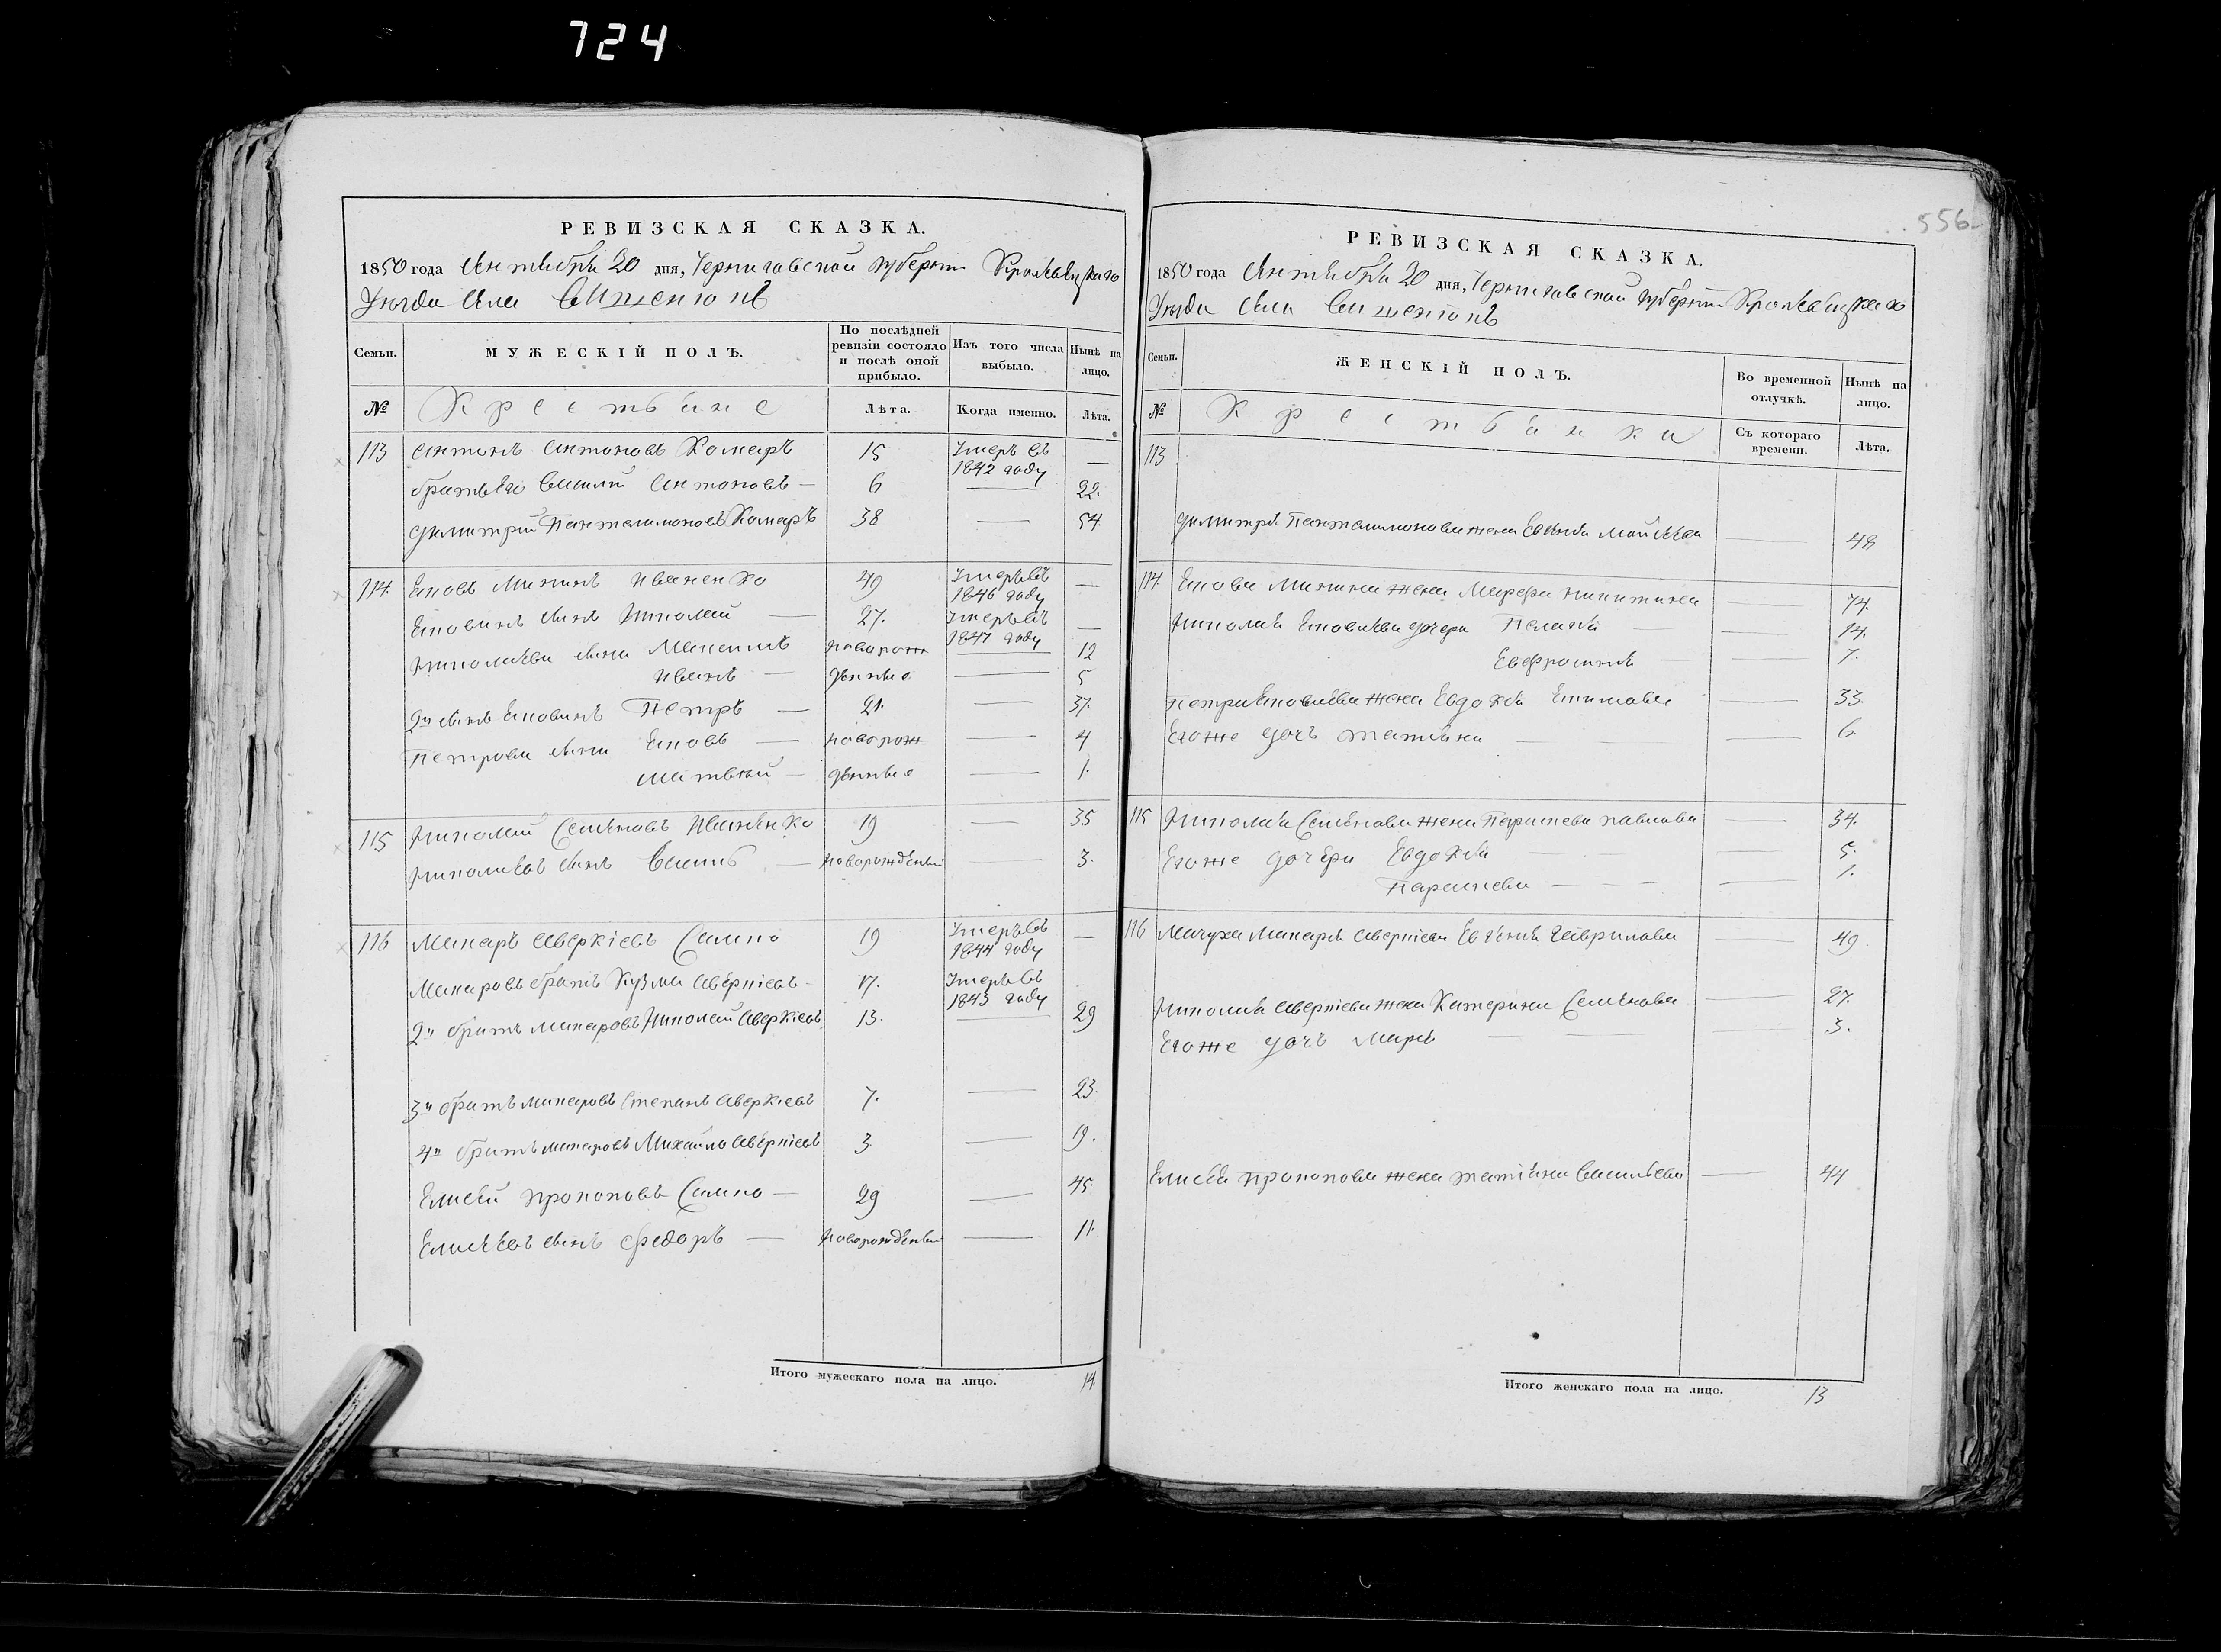 724
556
РЕВИЗСКАЯ СКАЗКА.
1850 года Октября 20 дня, Черниговской губернии Кролевецкаго
Уезда Села
Семьи. МУЖЕСКІЙ ПОЛЪ. По послѣдней ревизіи состояло и послѣ оной прибыло. Изъ того числа выбыло. Нынѣ на лицо.
№ Крестьяне Лѣта. Когда именно. Лѣта.
113 Антонъ Антоновъ Комаръ 15 Умеръ въ 1842 году —
братъ его Василій Антоновъ — 6 — 22.
Димитрій Пантелимоновъ Комаръ 38 — 54
114. Иваненко 49 Умеръ въ 1846 году —
сынъ Николай — 27. Умеръ въ 1847 году —
Николаевы сыны новорож — 12
Иванъ — денные — 5
2й сынъ Петръ — 21. — 37.
Петровы сыны — новорож — 4
Матвей — денные — 1.
115 Николай Семеновъ Иваненко 19 — 35
Николаевъ сынъ — новорожденный — 3.
116 Макаръ Аверкіевъ Сашко 19 Умеръ въ 1844 году —
Макаровъ братъ Кузма Аверкіевъ — 17. Умеръ въ 1843 году
2й братъ Макаровъ Николай Аверкіевъ 13. — 29
3й братъ Макаровъ Степанъ Аверкіевъ 7. — 23.
4й братъ Макаровъ Михайло Аверкіевъ 3 — 19.
Елисей Прокоповъ Сашко — 29 — 45
Елисеевъ сынъ Федоръ — новорожденный — 11.
Итого мужескаго пола на лицо. 14
РЕВИЗСКАЯ СКАЗКА.
1850 года Октября 20 дня, Черниговской губернии Кролевецкаго
Уезда Села
Семьи. ЖЕНСКІЙ ПОЛЪ. Во временной отлучкѣ. Нынѣ на лицо.
№ Крестьянки Съ котораго времени. Лѣта.
113
Димитрія Пантелимонова жена Евгенія Мойсеева — 48
114 жена Марфа Никитина — 74.
Николая дочери Пелагія — — 14.
Евфросинія — — 7.
Петра жена Евдокія — 33.
Его же дочь Татіяна — — 6
115 Николая Семенова жена Параскева Павлова — 34.
Его же дочери Евдокія — — 5.
Параскева — — — — 1.
116 Мачуха Макара Аверкіева Евгенія Гаврилова — 49.
Николая Аверкіева жена Катерина Семенова — 27.
Его же дочь Марія — — — 3.
Елисея Прокопова жена Татіяна Васильева — 44
Итого женскаго пола на лицо. 13